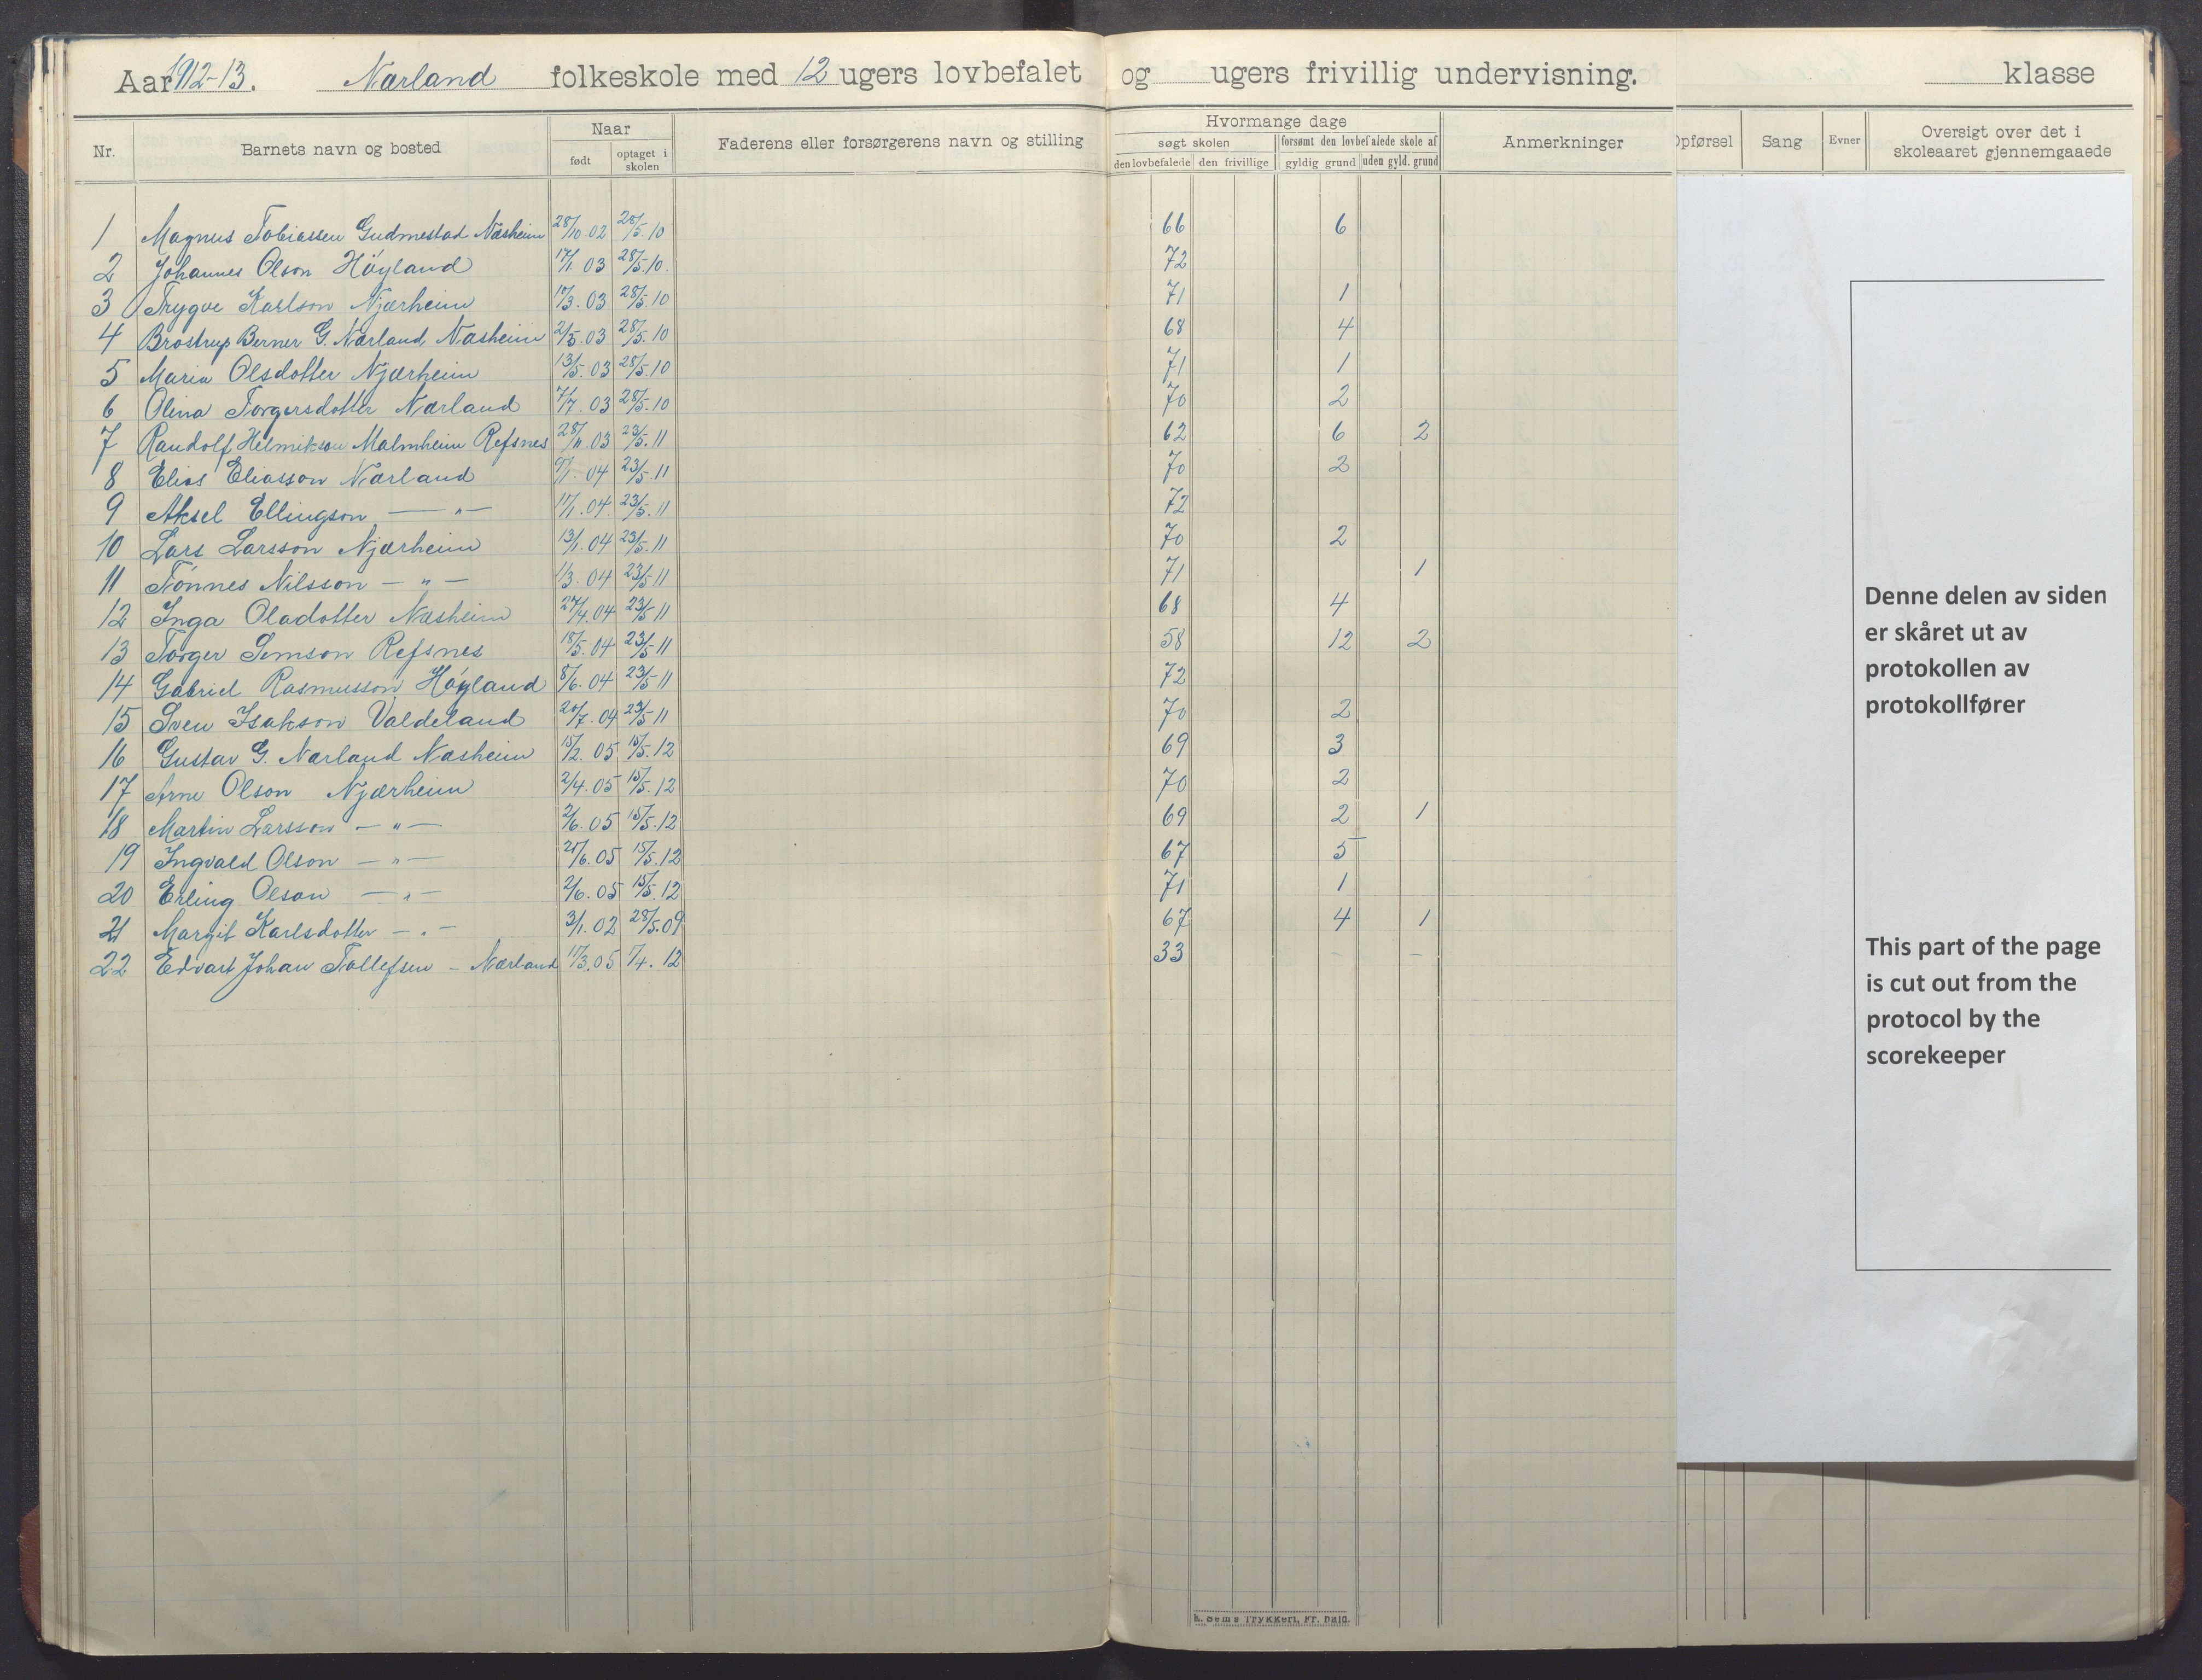 Aar 1912-13. Nærland folkeskole med 12 ugers lovbefalet og ugers frivillig undervisning. klasse
Nr. Barnets navn og bosted Naar født optaget i skolen Faderens eller forsørgerens navn og stilling Hvormange dage søgt skolen den lovbefalede den frivillige forsømt den lovbefalede skole af gyldig grund uden gyld. grund Anmerkninger Opførsel Sang Evner Oversigt over det i skoleaaret gjennemgaaede
1 Magnus Tobiassen Gudmestad Næsheim 28/10.02 28/5.10 66 6
2 Johannes Olson Høyland 17/1.03 28/5.10. 72
3 Trygve Karlson Njærheim 17/3.03 28/5.10 71 1
4 Brostrup Berner G. Nærland Næsheim 2/5.03 28/5.10 68 4
5 Maria Olsdotter Njærheim 13/5.03 28/5.10 71 1
6 Olina Torgersdotter Nærland 7/7.03 28/5.10 70 2
7 Randolf Helmikson Malmheim Refsnes 28/11.03 23/5.11 62 6 2
8 Elias Eliasson Nærland 9/1.04 23/5.11 70 2
9 Aksel Ellingson — " — 11/1.04 23/5.11 72
10 Lars Larsson Njærheim 13/1.04 23/5.11 70 2
11 Tønnes Nilsson — " — 1/3.04 23/5.11 71 1
12 Inga Oladotter Næsheim 27/4.04 23/5.11 68 4
13 Torger Semson Refsnes 18/5.04 23/5.11 58 12 2
14 Gabriel Rasmusson Høyland 8/6.04 23/5.11 72
15 Sven Isakson Valdeland 20/7.04 23/5.11 70 2
16 Gustav G. Nærland Næsheim 15/2.05 15/5.12 69 3
17 Arne Olson Njærheim 2/4.05 15/5.12 70 2
18 Martin Larsson — " — 2/6.05 15/5.12 69 2 1
19 Ingvald Olson — " — 21/6.05 15/5.12 67 5
20 Erling Olson — " — 2/6.05 15/5.12 71 1
21 Margit Karlsdotter — " — 3/1.02 28/5.09 67 4 1
22 Edvart Johan Tollefsen - Nærland 17/3.05 7/4.12 33 - -
Denne delen av siden
er skåret ut av
protokollen av
protokollfører
This part of the page
is cut out from the
protocol by the
scorekeeper